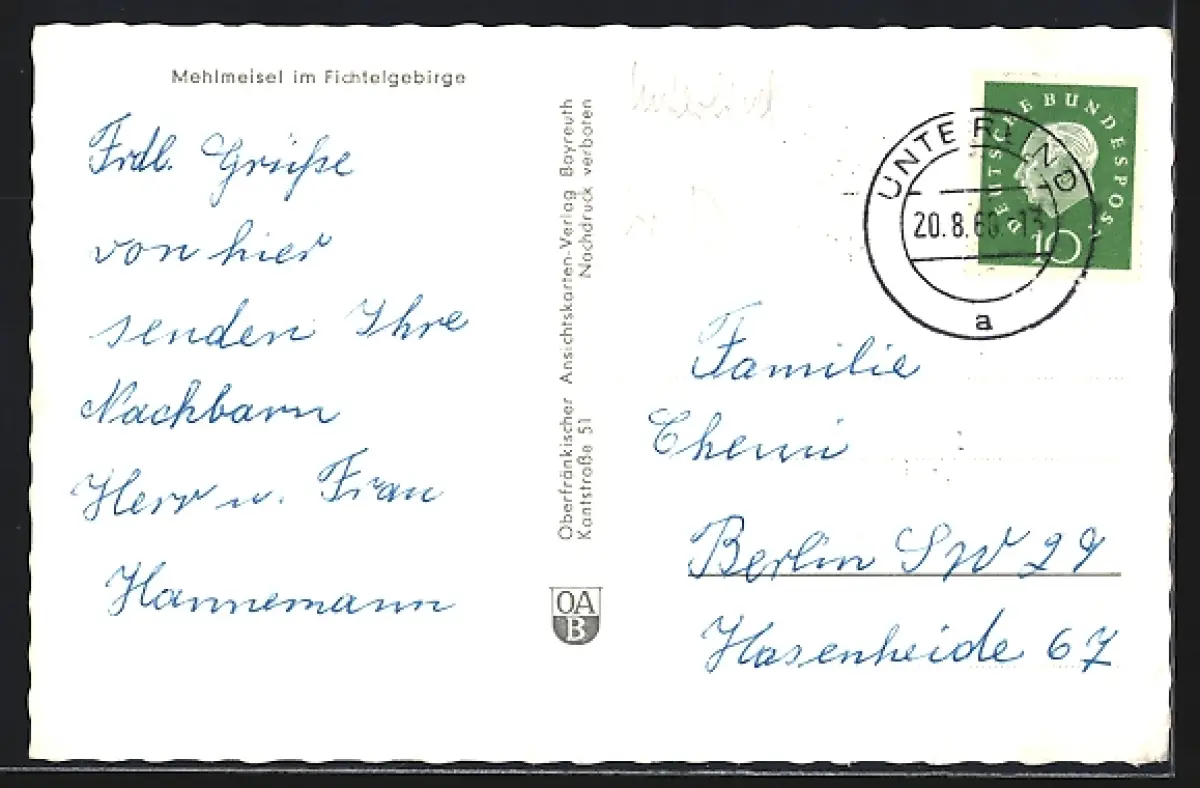 Mehlmeisel im Fichtelgebirge
Frdl. Grüße
von hier
senden Ihre
Nachbarn
Herr u. Frau
Hannemann
Oberfränkischer Ansichtskarten-Verlag Bayreuth
Kantstraße 51 Nachdruck verboten
OA
B
DEUTSCHE BUNDESPOST
10
UNTERLIND
20.8.60.-13
a
Familie
Berlin SW 29
Hasenheide 67